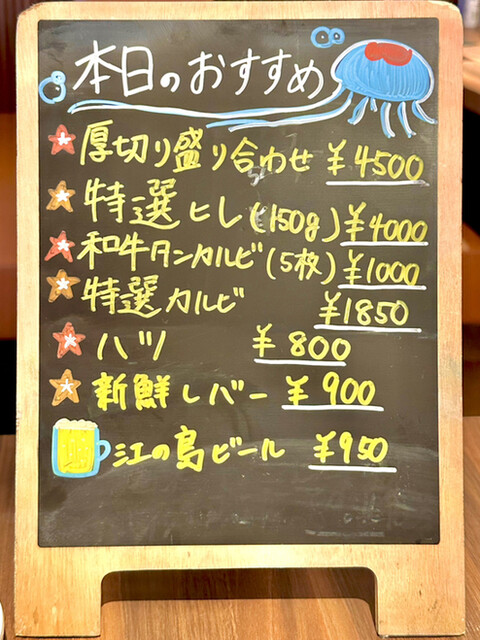 本日のおすすめ
厚切り盛り合わせ ¥4500
特選ヒレ(150g) ¥4000
和牛タンカルビ(5枚) ¥1000
特選カルビ ¥1850
ハツ ¥800
新鮮レバー ¥900
江の島ビール ¥950